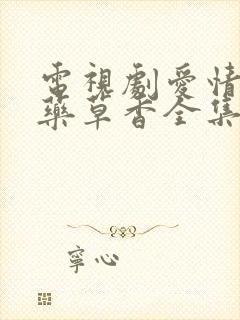 電視劇愛情
藥草香全集
寧心